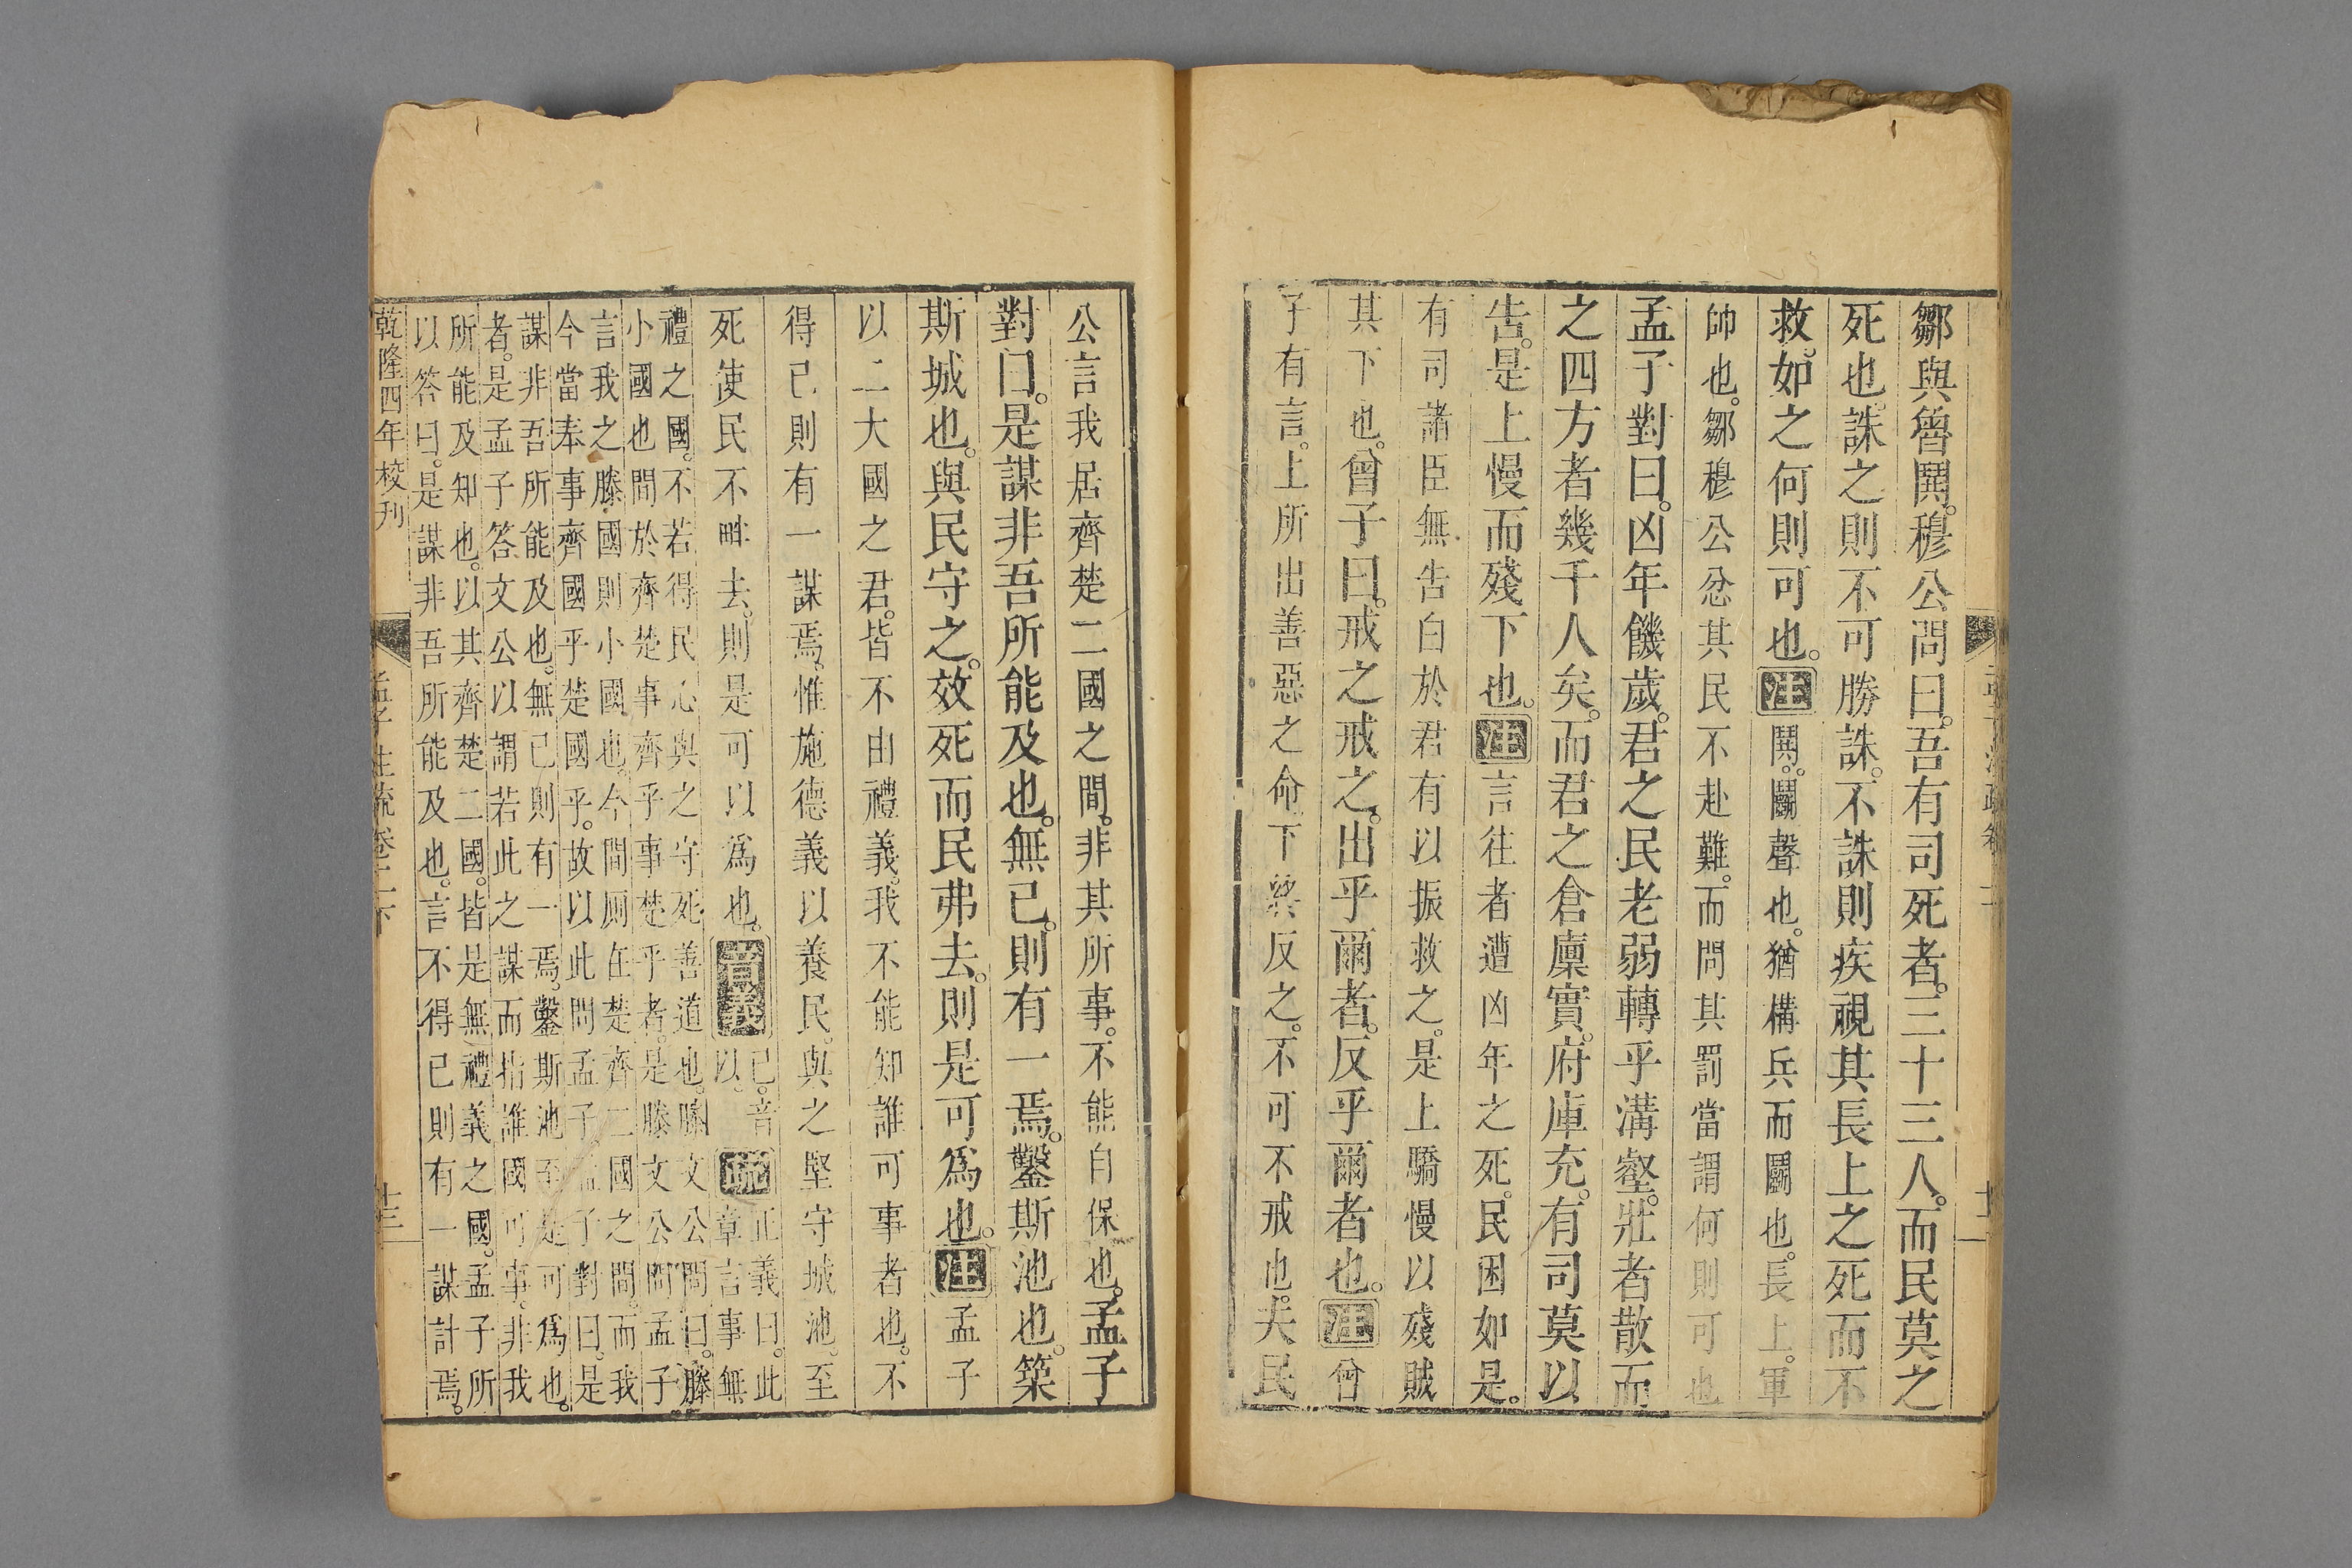 鄒與魯鬨。穆公問曰。吾有司死者。三十三人。而民莫之
死也。誅之則不可勝誅。不誅則疾視其長上之死而不
救。如之何則可也。注鬨。鬭聲也。猶構兵而鬭也。長上。軍
帥也。鄒穆公忿其民不赴難。而問其罰當謂何則可也
孟子對曰。凶年饑歲。君之民老弱轉乎溝壑。壯者散而
之四方者幾千人矣。而君之倉廩實。府庫充。有司莫以
告。是上慢而殘下也。注言往者遭凶年之死。民困如是。
有司諸臣無告白於君有以振救之。是上驕慢以殘賊
其下也。曾子曰。戒之戒之。出乎爾者。反乎爾者也。注曾
子有言。上所出善惡之命下終反之。不可不戒也。夫民
公言我居齊楚二國之間。非其所事。不能自保也。孟子
對曰。是謀非吾所能及也。無已。則有一焉。鑿斯池也。築
斯城也。與民守之。效死而民弗去。則是可為也。注孟子
以二大國之君。皆不由禮義。我不能知誰可事者也。不
得已則有一謀焉。惟施德義以養民。與之堅守城池。至
死使民不畔去。則是可以為也。音義已。音
以。疏正義曰。此
章言事無
禮之國。不若得民心與之守死善道也。滕文公問曰。滕
小國也間於齊楚事齊乎事楚乎者。是滕文公問孟子
言我之滕國則小國也。今間厠在楚齊二國之間。而我
今當奉事齊國乎楚國乎。故以此問孟子。孟子對曰。是
謀非吾所能及也。無已則有一焉。鑿斯池至是可為也。
者。是孟子答文公以謂若此之謀而指誰國可事。非我
所能及知也。以其齊楚二國。皆是無禮義之國。孟子所
以答曰。是謀非吾所能及也。言不得已則有一謀計焉。
乾隆四年校刊
孟子注疏卷二下